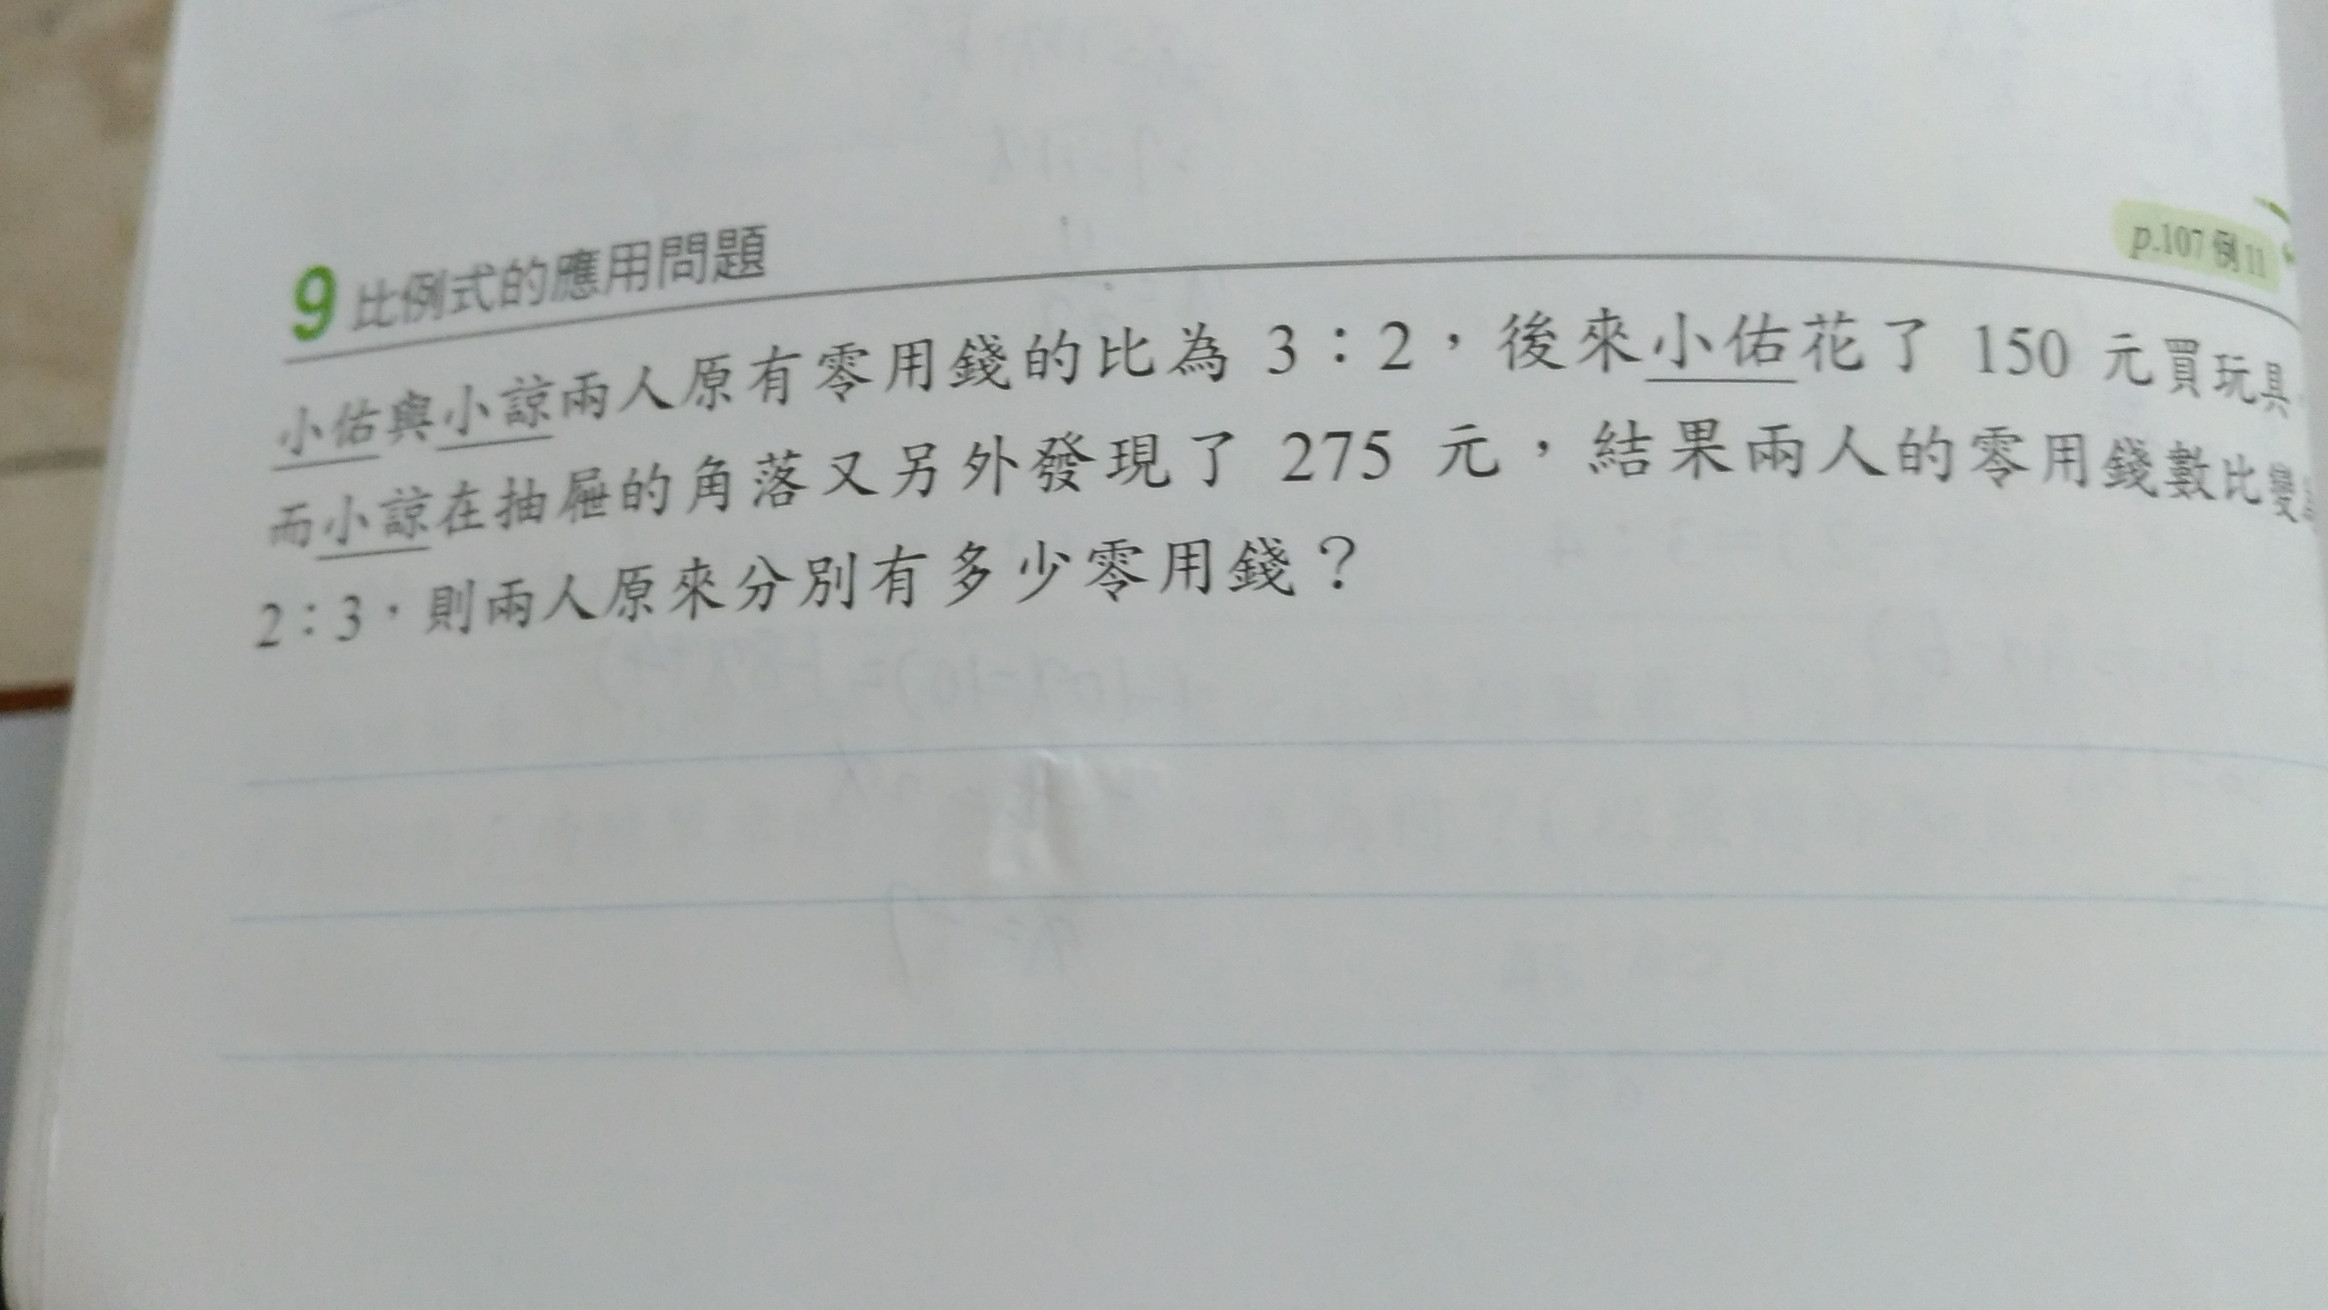 p.107 例 11
9 比例式的應用問題
小佑與小諒兩人原有零用錢的比為 3：2，後來小佑花了 150 元買玩具，
而小諒在抽屜的角落又另外發現了 275 元，結果兩人的零用錢數比變
2：3，則兩人原來分別有多少零用錢？